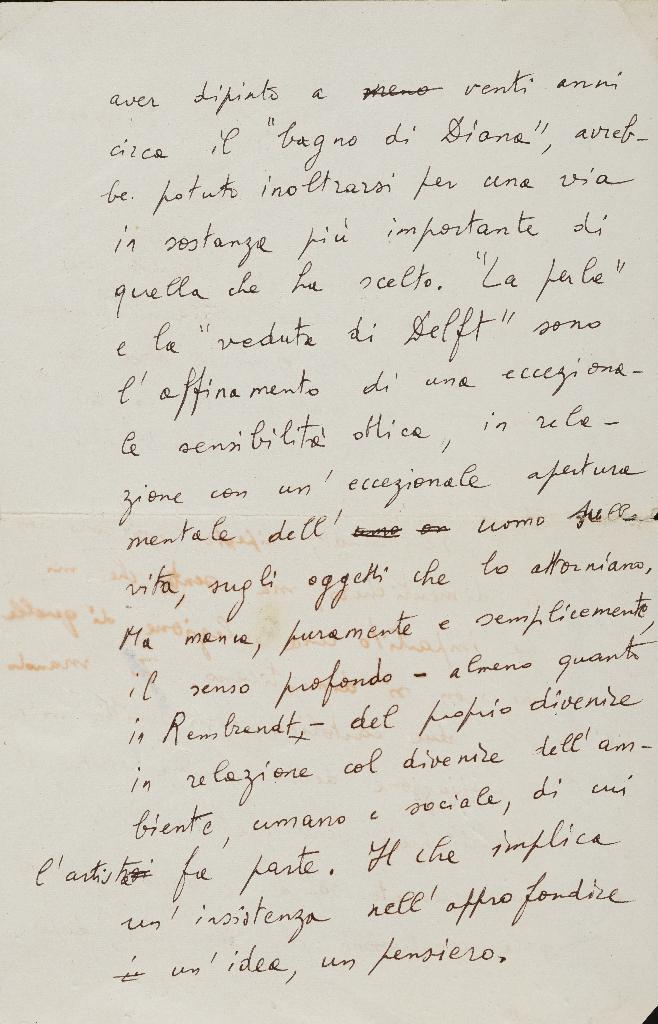 aver dipinto a meno venti anni
circa il "bagno di Diana", avreb-
be potuto inoltrarsi per una via
in sostanza più importante di
quella che ha scelto. "La perla"
e la "veduta di Delft" sono
l'affinamento di una ecceziona-
le sensibilità ottica, in rela-
zione con un'eccezionale apertura
mentale dell' uomo sulla
vita, sugli oggetti che lo attorniano,
Ma manca, puramente e semplicemente,
il senso profondo - almeno quanto
in Rembrandt, - del proprio divenire
in relazione col divenire dell'am-
biente, umano e sociale, di cui
l'artista fa parte. Il che implica
un'insistenza nell'approfondire
un'idea, un pensiero.